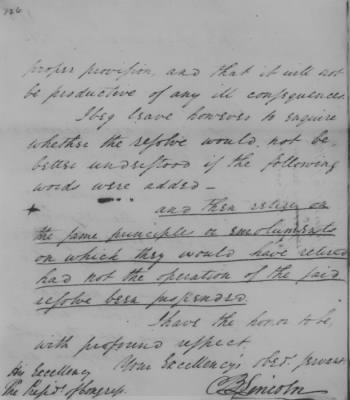 126
proper provision, and that it will not
be productive of any ill consequences
I beg leave however to enquire
whether the resolve would not be
better understood if the following
words were added –
+ and then retire on
the same principles or emoluments
on which they would have retired
had not the operation of the said
resolve been suspended
I have the honor to be,
with profound respect,
Your Excellency's obed.t servant
His Excellency
The Presid.t of Congress.
B Lincoln